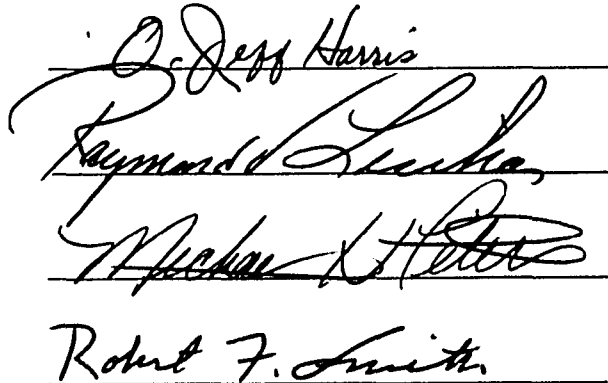 O. Jeff Harris
Raymond
Michael Peters
Robert F. Smith